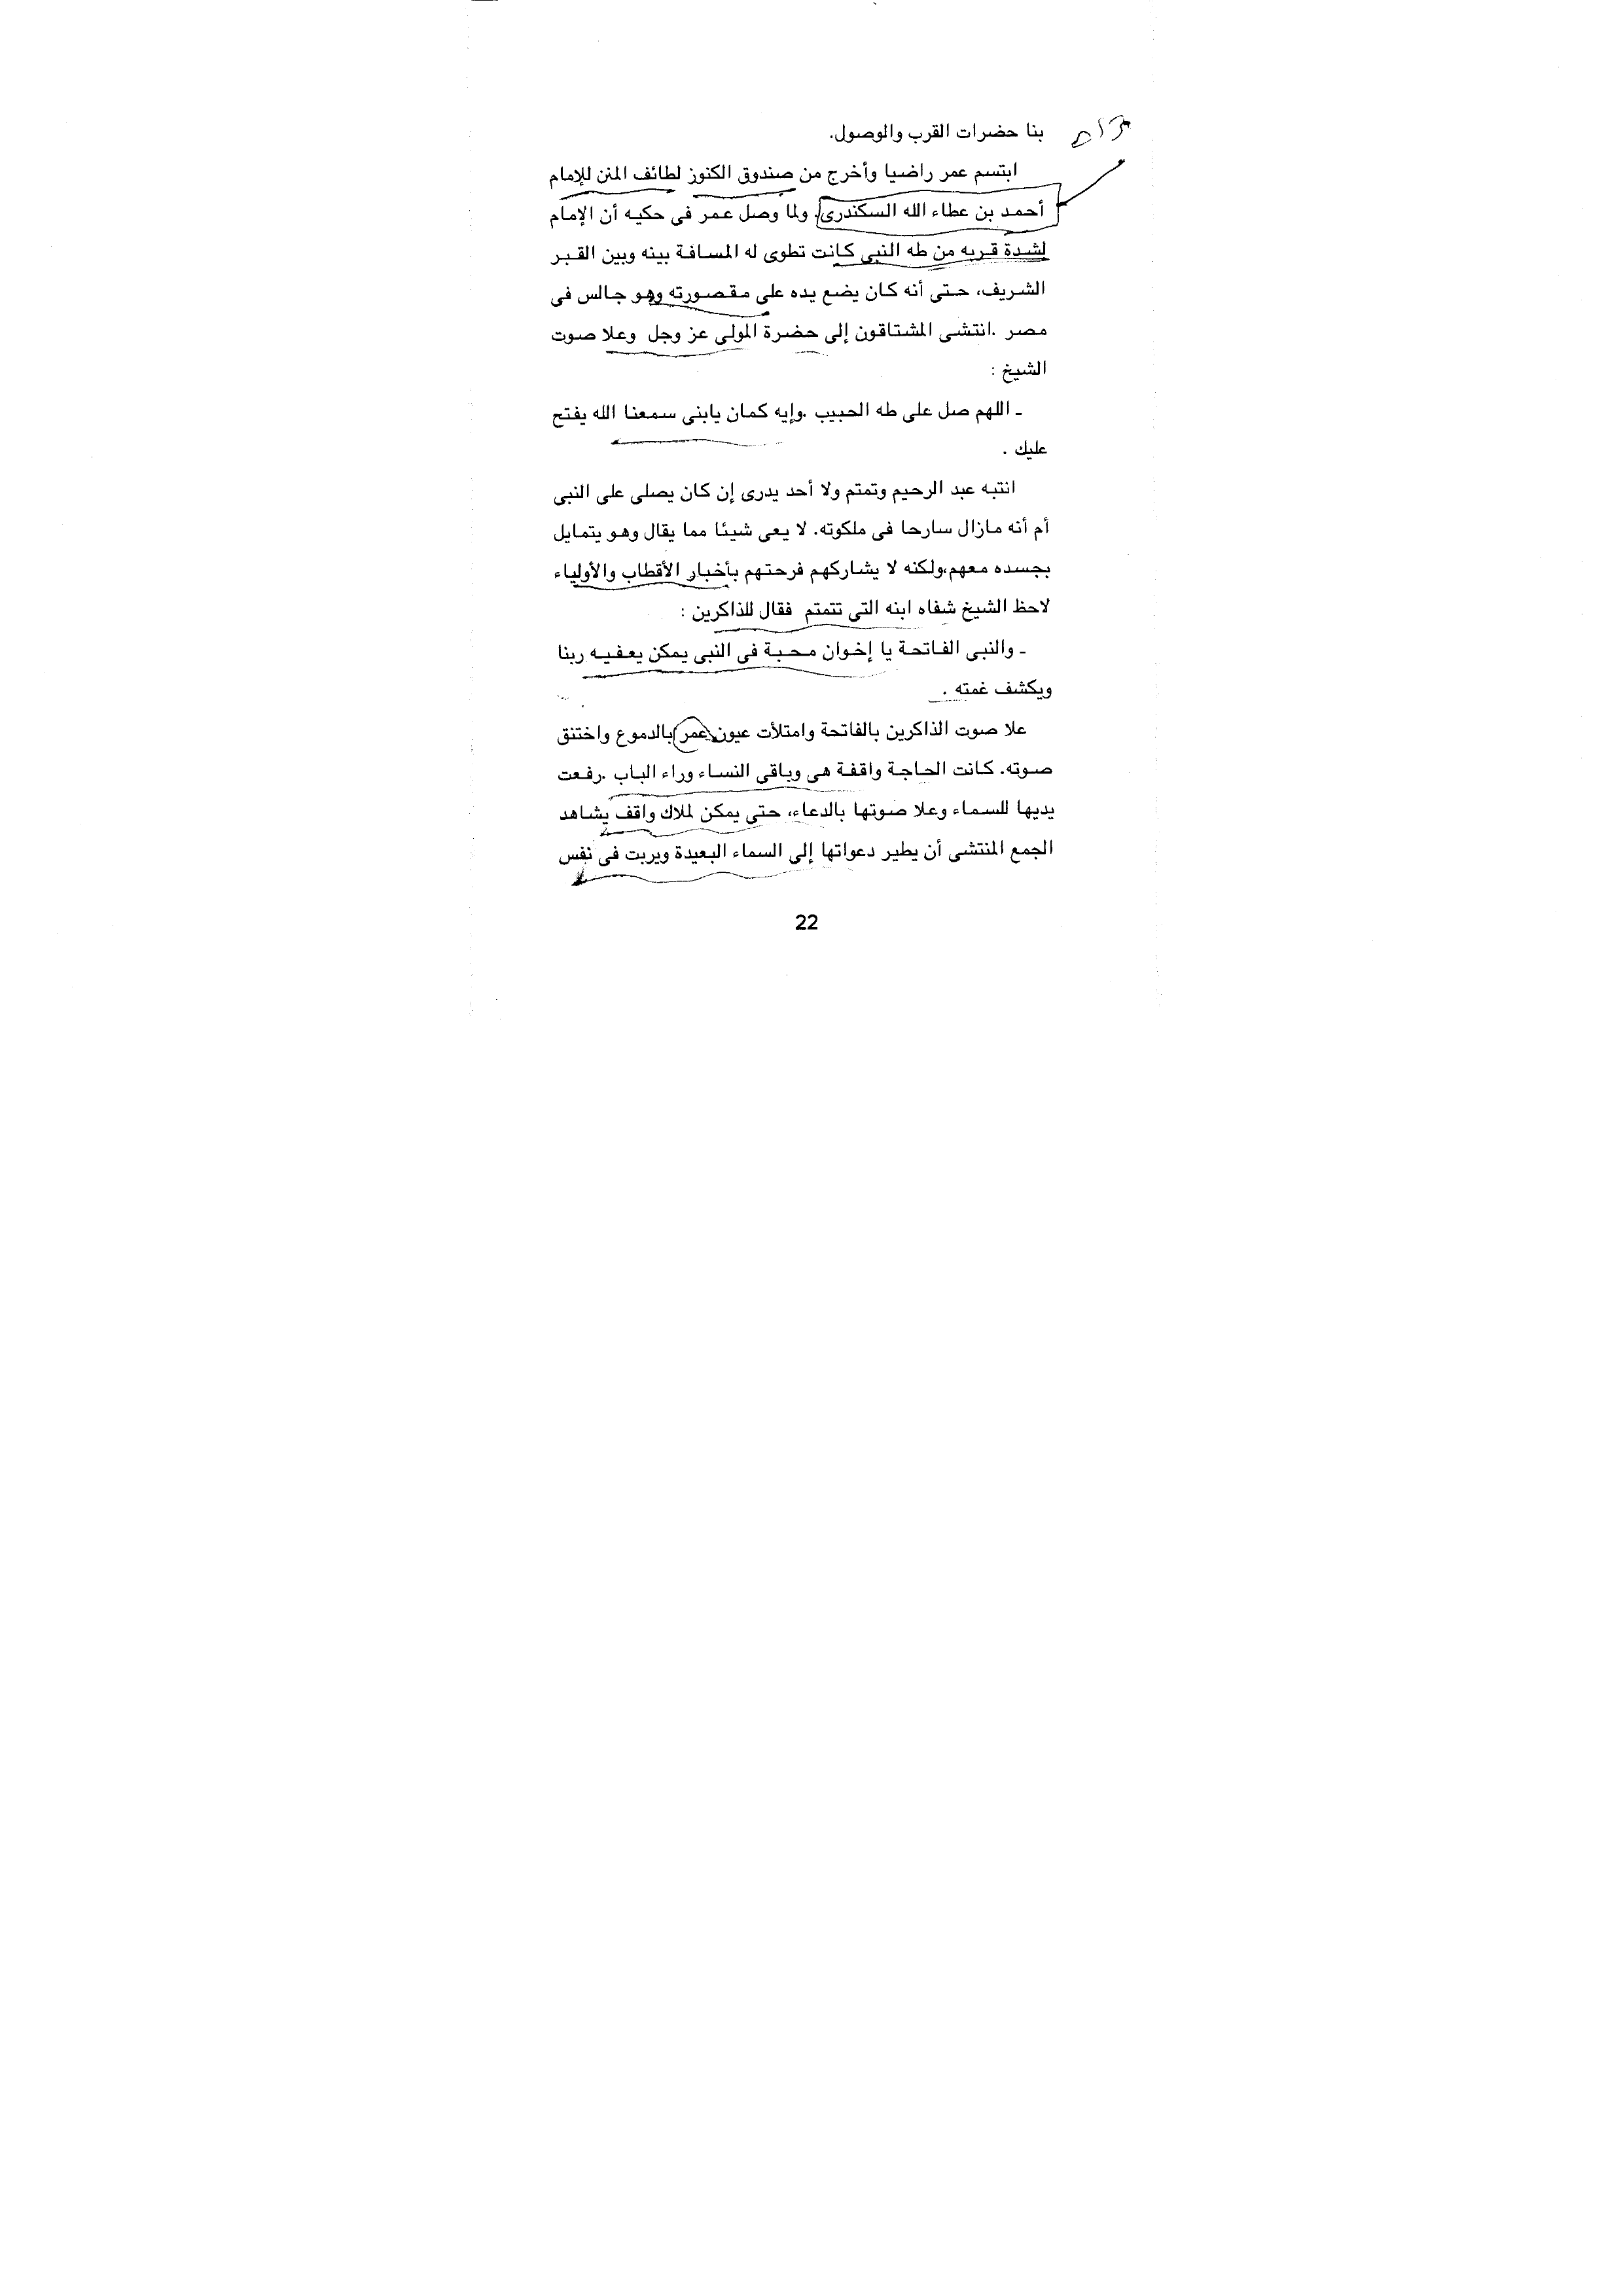 بنا حضرات القرب والوصول.
ابتسم عمر راضيا وأخرج من صندوق الكنوز لطائف المنن للإمام
أحمد بن عطاء الله السكندرى. ولما وصل عمر فى حكيه أن الإمام
لشدة قربه من طه النبى كانت تطوى له المسافة بينه وبين القبر
الشريف، حتى أنه كان يضع يده على مقصورته وهو جالس فى
مصر .انتشى المشتاقون إلى حضرة المولى عز وجل وعلا صوت
الشيخ :
ـ اللهم صل على طه الحبيب .وإيه كمان يابنى سمعنا الله يفتح
عليك .
انتبه عبد الرحيم وتمتم ولا أحد يدرى إن كان يصلى على النبى
أم أنه مازال سارحا فى ملكوته. لا يعى شيئا مما يقال وهو يتمايل
بجسده معهم،ولكنه لا يشاركهم فرحتهم بأخبار الأقطاب والأولياء
لاحظ الشيخ شفاه ابنه التى تتمتم فقال للذاكرين :
ـ والنبى الفاتحة يا إخوان محبة فى النبى يمكن يعفيه ربنا
ويكشف غمته .
علا صوت الذاكرين بالفاتحة وامتلأت عيون عمر بالدموع واختنق
صوته. كانت الحاجة واقفة هى وباقى النساء وراء الباب .رفعت
يديها للسماء وعلا صوتها بالدعاء، حتى يمكن لملاك واقف يشاهد
الجمع المنتشى أن يطير دعواتها إلى السماء البعيدة ويربت فى نفس
22